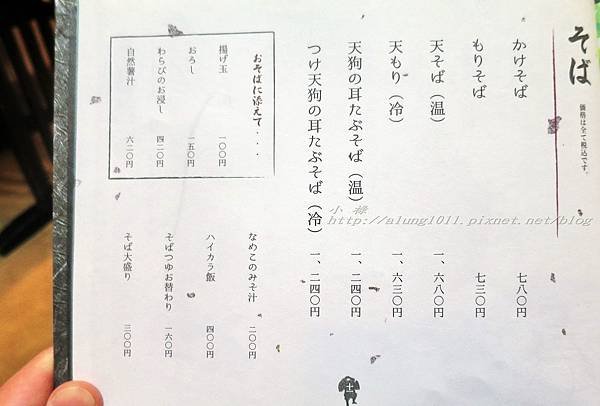 そば
価格は全て税込です。
かけそば 七八〇円
もりそば 七三〇円
天そば（温） 一、六八〇円
天もり（冷） 一、六三〇円
天狗の耳たぶそば（温） 一、二四〇円
つけ天狗の耳たぶそば（冷） 一、二四〇円
おそばに添えて・・・
揚げ玉 一〇〇円
おろし 一五〇円
わらびのお浸し 四二〇円
自然薯汁 六二〇円
なめこのみそ汁 二〇〇円
ハイカラ飯 四〇〇円
そばつゆお替わり 一六〇円
そば大盛り 三〇〇円
小祿
http://alung1011.pixnet.net/blog